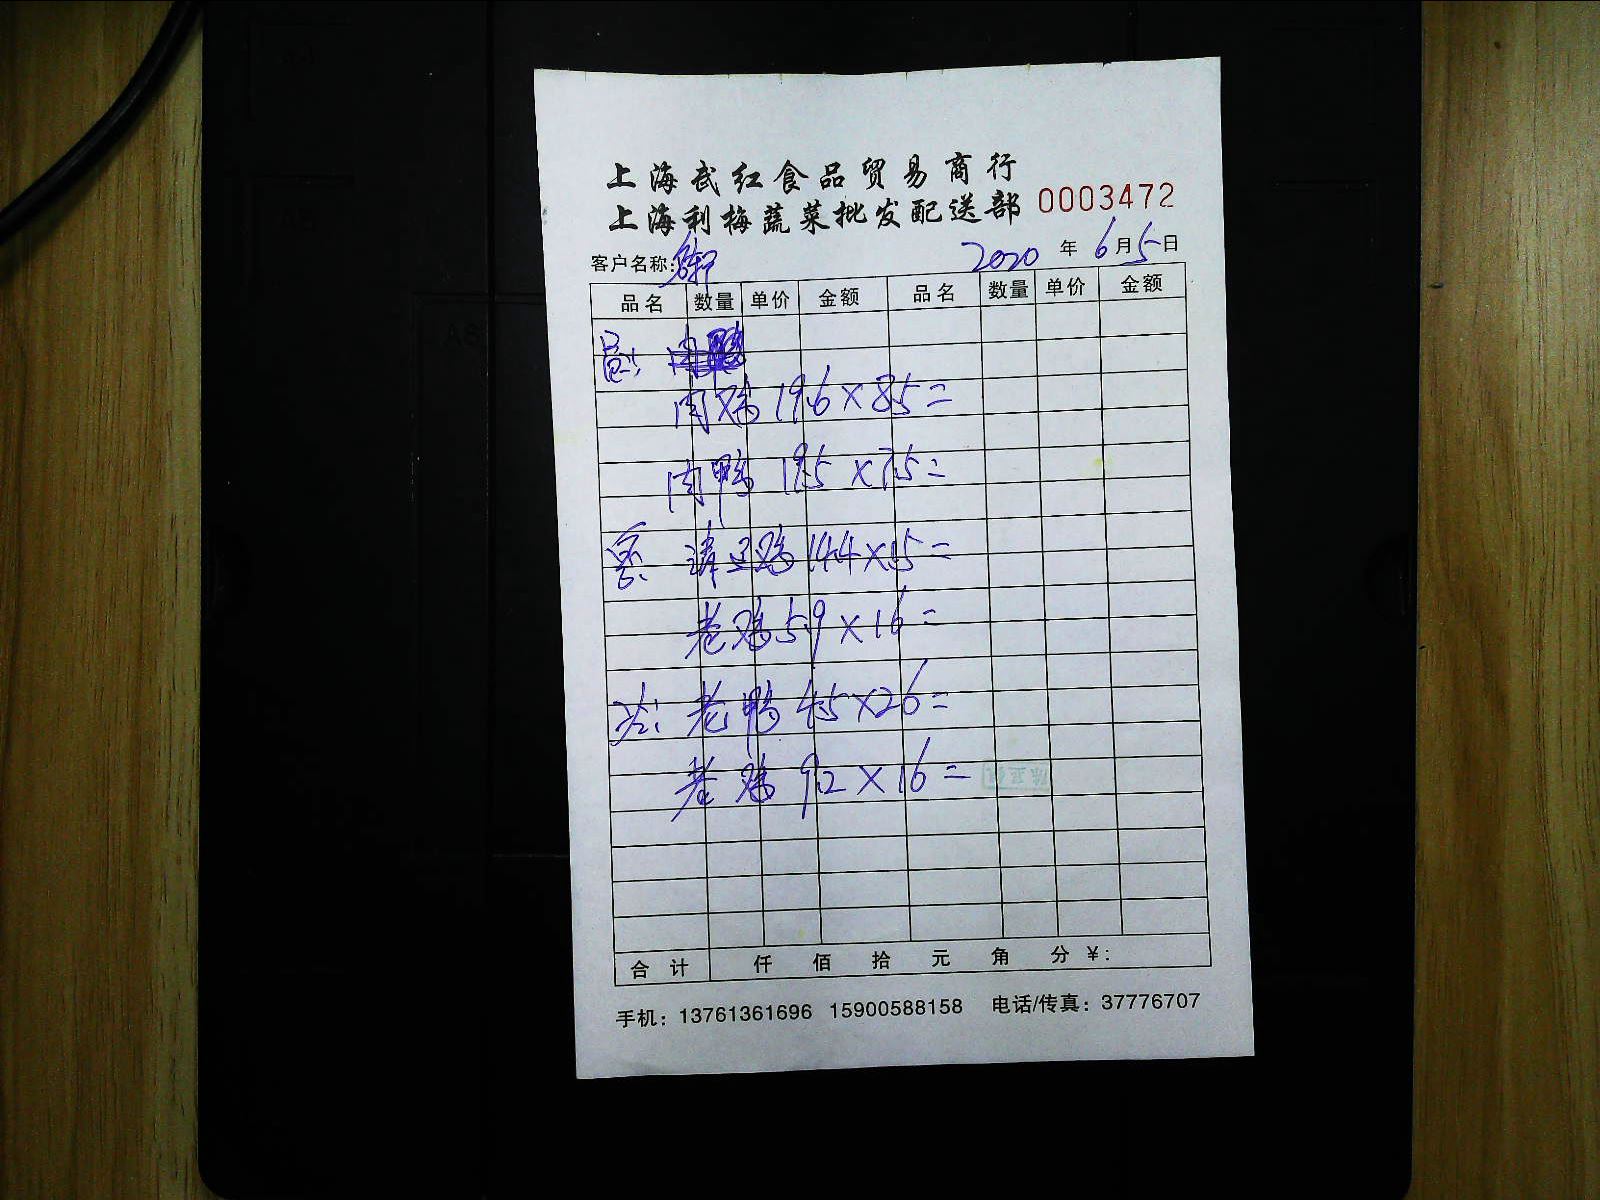 上海武红食品贸易商行
上海利梅蔬菜批发配送部 0003472
客户名称: 2020 年 6 月 5 日
品名 数量 单价 金额 品名 数量 单价 金额
肉鸡 19.6×8.5=
肉鸭 19.5×7.5=
鸡 14.4×15=
老鸡 5.9×16=
老鸭 4.5×26=
老鸡 9.2×16=
合计 仟 佰 拾 元 角 分 ¥:
手机: 13761361696 15900588158 电话/传真: 37776707